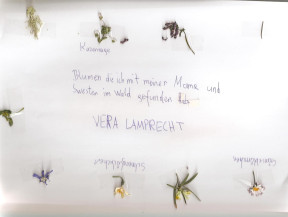 Blumen die ich mit meiner Mama und
Swester im Wald gefunden hab
VERA LAMPRECHT
Schneeglöckchen
Gänseblümchen